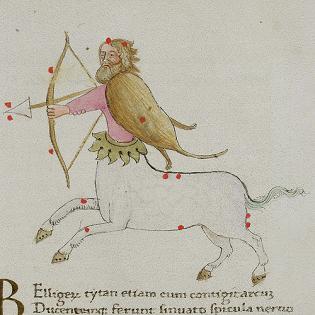 Belliger tytan etiam cum contigit arcuz
ferunt sinuato spicula neruo